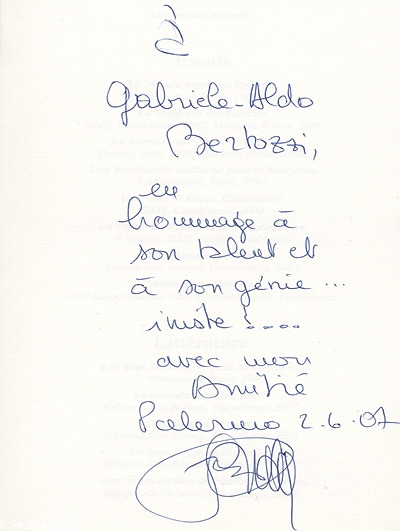 à
Gabriele-Aldo
Bertozzi,
en
hommage à
son talent et
à son génie ...
iniste !....
avec mon
Amitié
Palermo 2.6.07